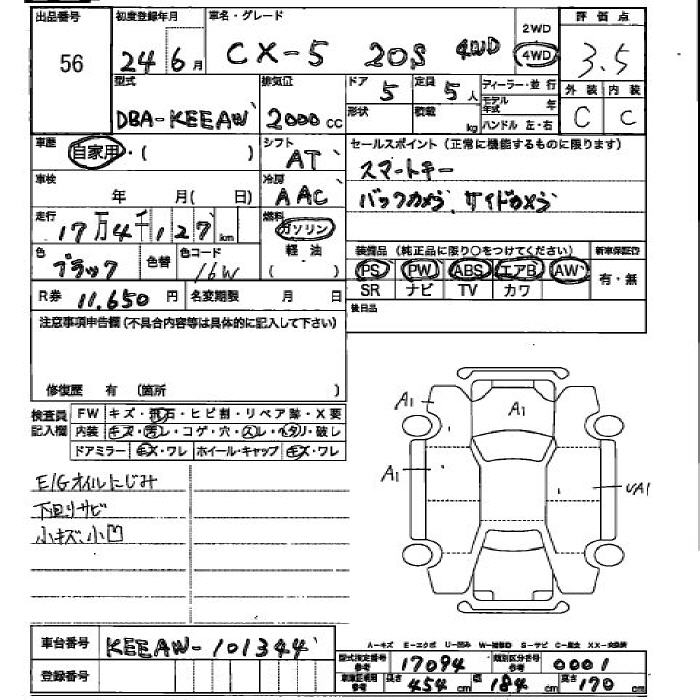 出品番号 56
初度登録年月 24 6月
車名・グレード CX-5 20S 4WD
2WD 4WD
評価点 3.5
外装 内装
C C
型式 DBA-KEEAW
排気量 2000cc
ドア 5
定員 5人
ディーラー・並行
形状
積載 kg
モデル年式 年
ハンドル 左・右
車歴 自家用・( )
シフト AT
セールスポイント (正常に機能するものに限ります)
スマートキー
バックカメラ、サイドカメラ
車検 年 月( 日)
冷房 AAC
走行 17万4千127km
燃料 ガソリン
軽油
( )
色 ブラック
色替
色コード 16W
装備品 (純正品に限り○をつけてください)
新車保証書
PS PW ABS エアB AW
SR ナビ TV カワ
有・無
R券 11,650円
名変期限 月 日
後日品
注意事項申告欄(不具合内容等は具体的に記入して下さい)
修復歴 有 (箇所 )
検査員記入欄
FW キズ・飛石・ヒビ割・リペア跡・X要
内装 キズ・汚レ・コゲ・穴・スレ・ヘタリ・破レ
ドアミラー キズ・ワレ
ホイール・キャップ キズ・ワレ
E/Gオイルにじみ
下回リサビ
小キズ、小凹
A1
A1
A1
UA1
A-キズ E-エクボ U-凹み W-補修跡 S-サビ C-腐食 XX-交換済
車台番号 KEEAW-101344
登録番号
型式指定番号 参考 17094
類別区分番号 参考 0001
車庫証明用 参考 長さ 454cm 幅 184cm 高さ 170cm